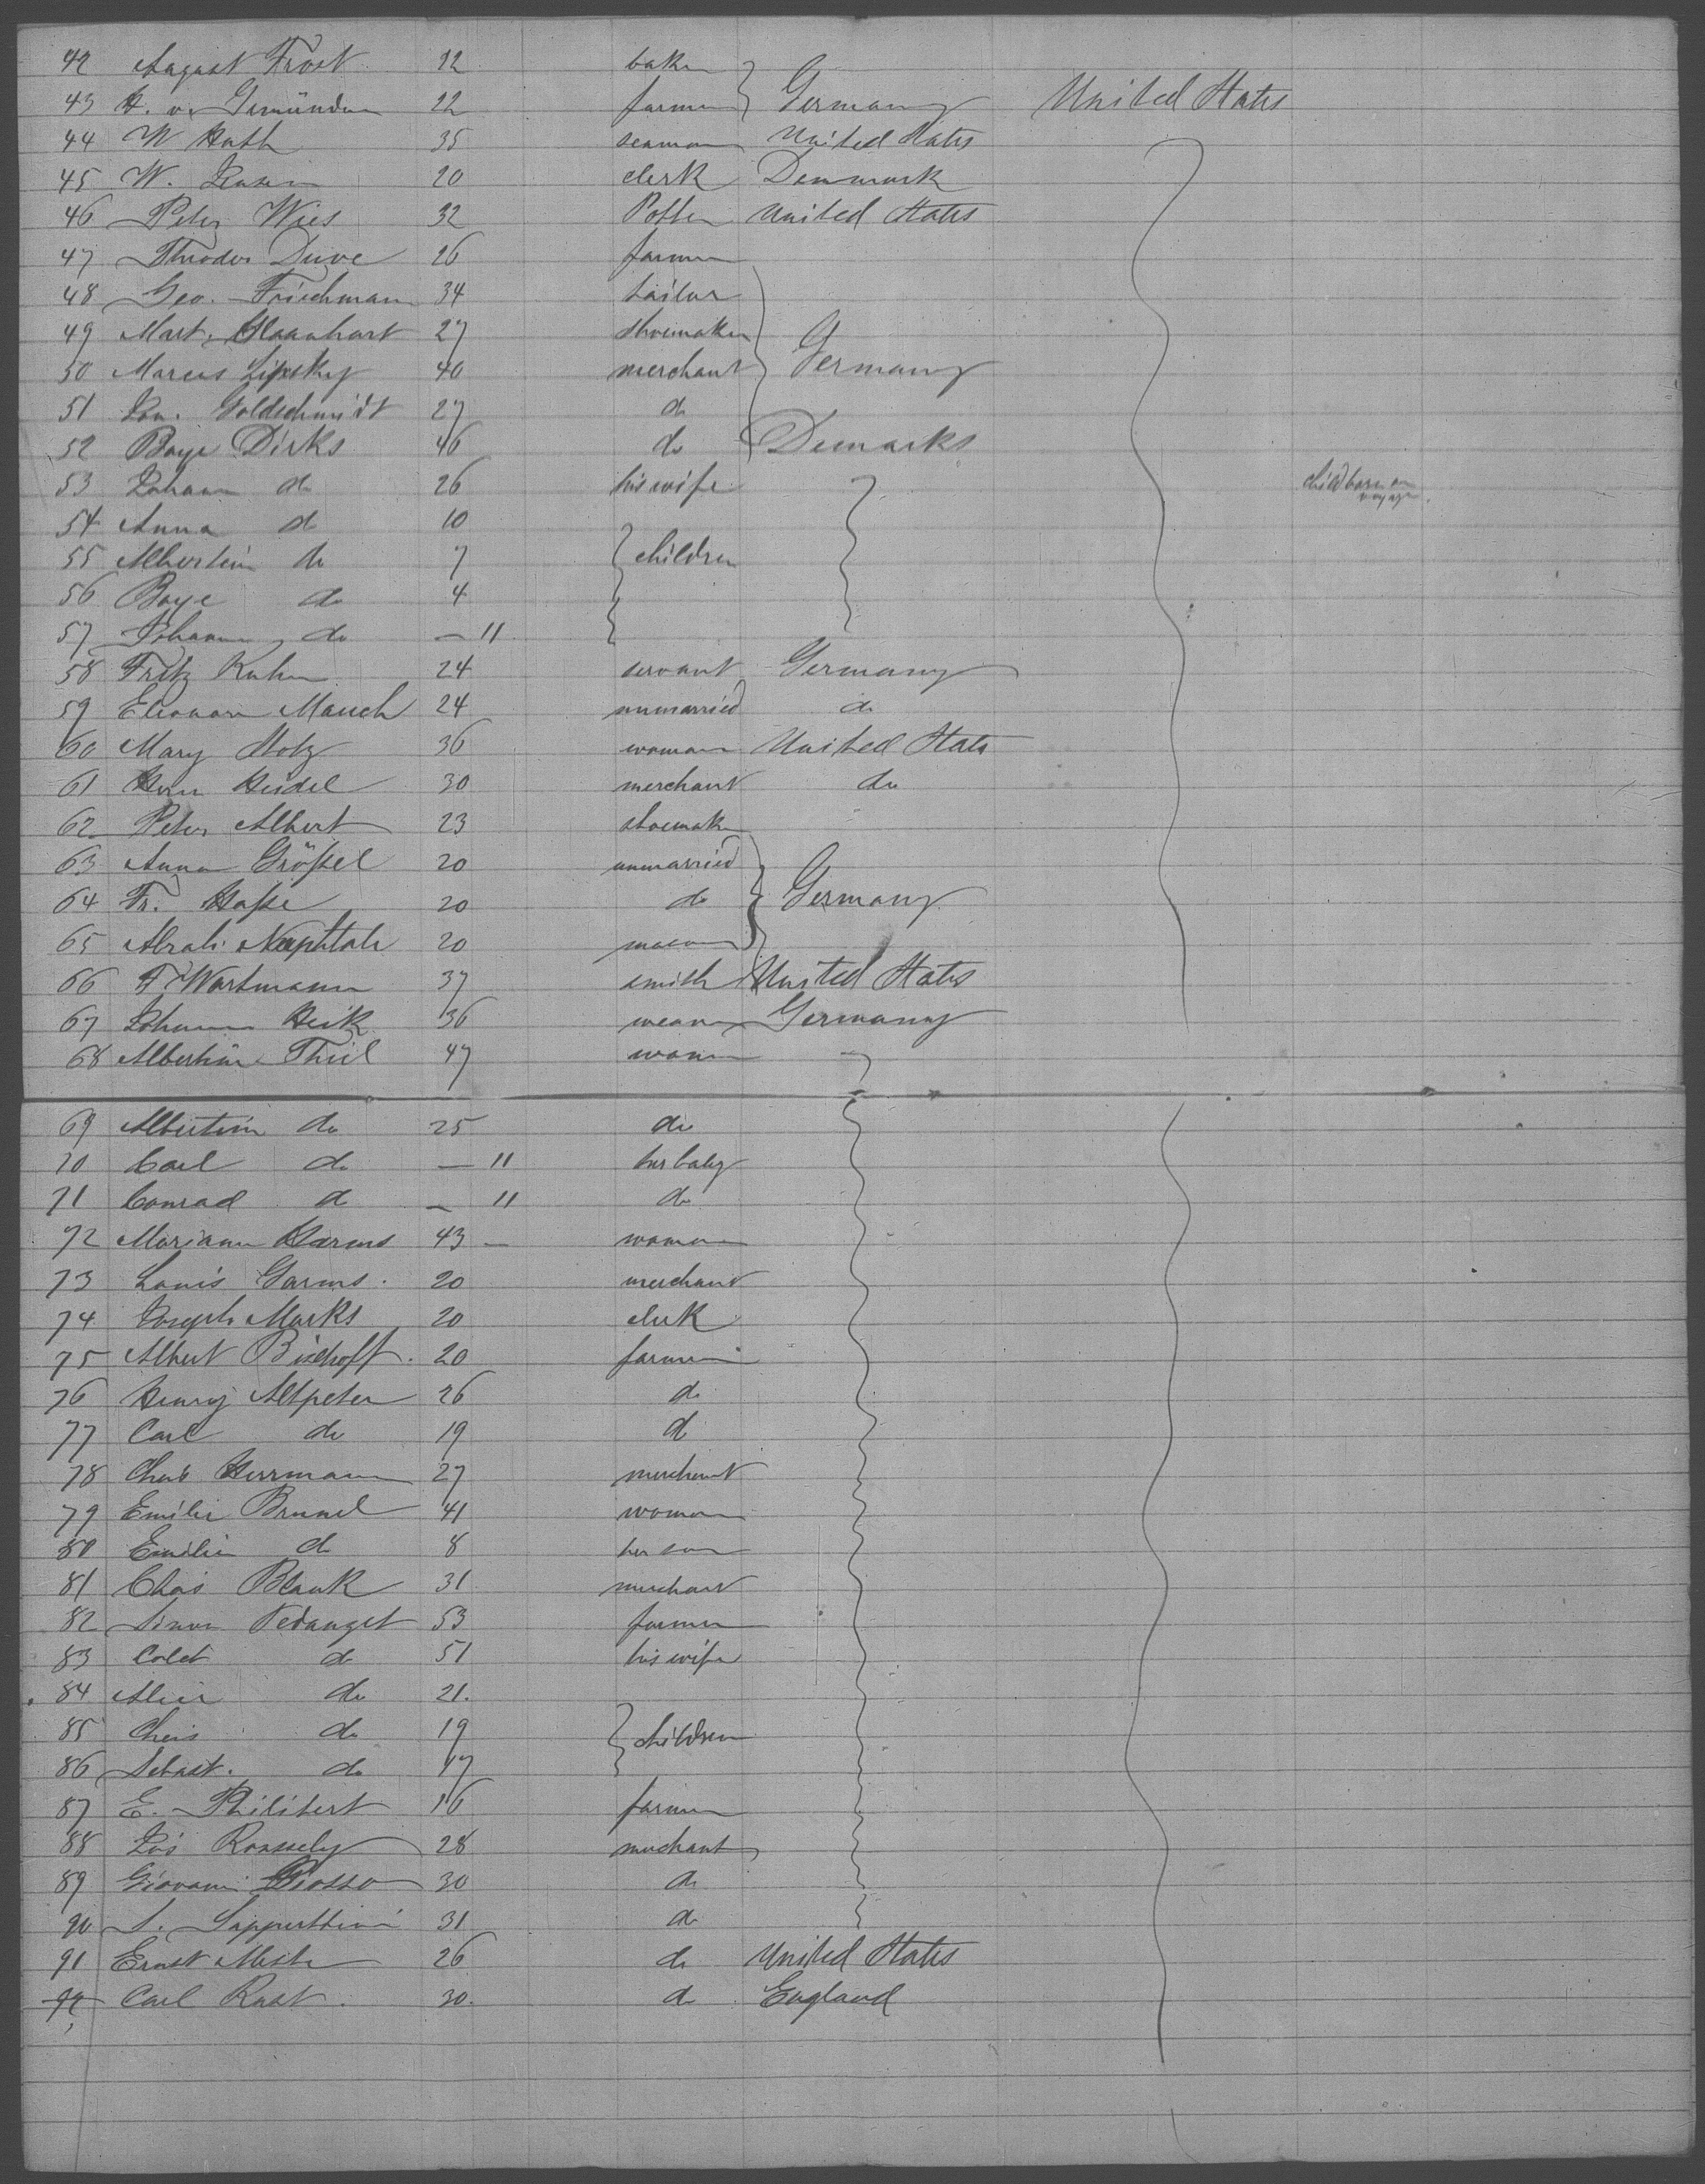 42 August Frost 22 baker
43 H. v. Gemünden 22 farmer Germany United States
44 W Huth 35 seaman United States
45 W. 20 clerk Denmark
46 Peter Wies 32 Potter United States
47 Theodor Duve 26 farmer
48 Geo. Frischmann 34 tailor
49 Mart. 27 shoemaker
50 Marcus Lipsky 40 merchant Germany
51 Goldschmidt 27 do
52 Boye Dirks 46 do Demarks
53 Johann do 26 his wife child born on voyage.
54 Anna do 10
55 Albertin do 7 children
56 Boye do 4
57 Johann do — 11
58 Fritz Kuhn 24 servant Germany
59 Eleonore Mauch 24 unmarried do
60 Mary Motz 36 woman United States
61 Herm Heidel 30 merchant do
62 Peter Albert 23 shoemaker
63 Anna Größel 20 unmarried
64 Fr. Haße 20 do Germany
65 Abrah. Naphtali 20 mason
66 F Wortmann 37 smith United States
67 Johann Heik 36 weaver Germany
68 Albertine Thiel 47 woman
69 Albertin do 25 do
70 Carl do — 11 her baby
71 Conrad do — 11 do
72 Mariann Harms 43 — woman
73 Louis Garms. 20 merchant
74 Joseph Marks 20 clerk
75 Albert Bischoff. 20 farmer
76 Henry Altpeter 26 do
77 Carl do 19 do
78 Chas Herrmann 27 merchant
79 Emilie Brunel 41 woman
80 Emilie do 8 her son
81 Chas Blank 31 merchant
82 Simon Pedanget 53 farmer
83 Colet do 51 his wife
84 do 21.
85 do 19 children
86 Sebast. do 17
87 E. Philibert 16 farmer
88 Jos 28 merchant
89 Giovanni 30 do
90 31 do
91 Ernst 26 do United States
92 Carl Rast. 30. do England